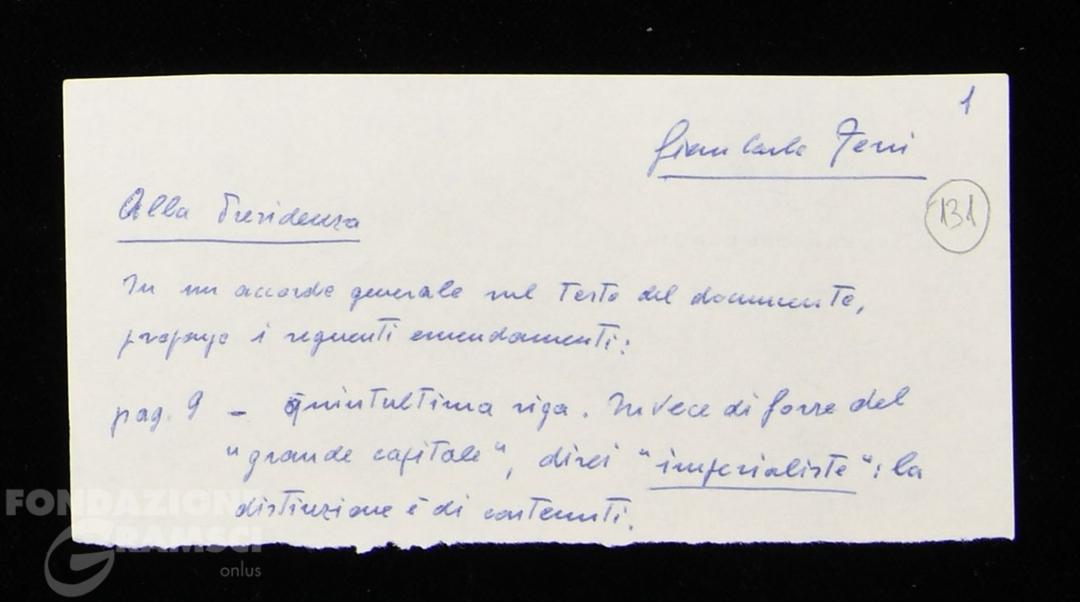 1
Giancarla
131
Alla Presidenza
In un accordo generale sul testo del documento,
propongo i seguenti emendamenti:
pag. 9 - quintultima riga. Invece di forze del
"grande capitale", direi "imperialiste": la
distinzione è di contenuti.
FONDAZIONE
GRAMSCI
onlus